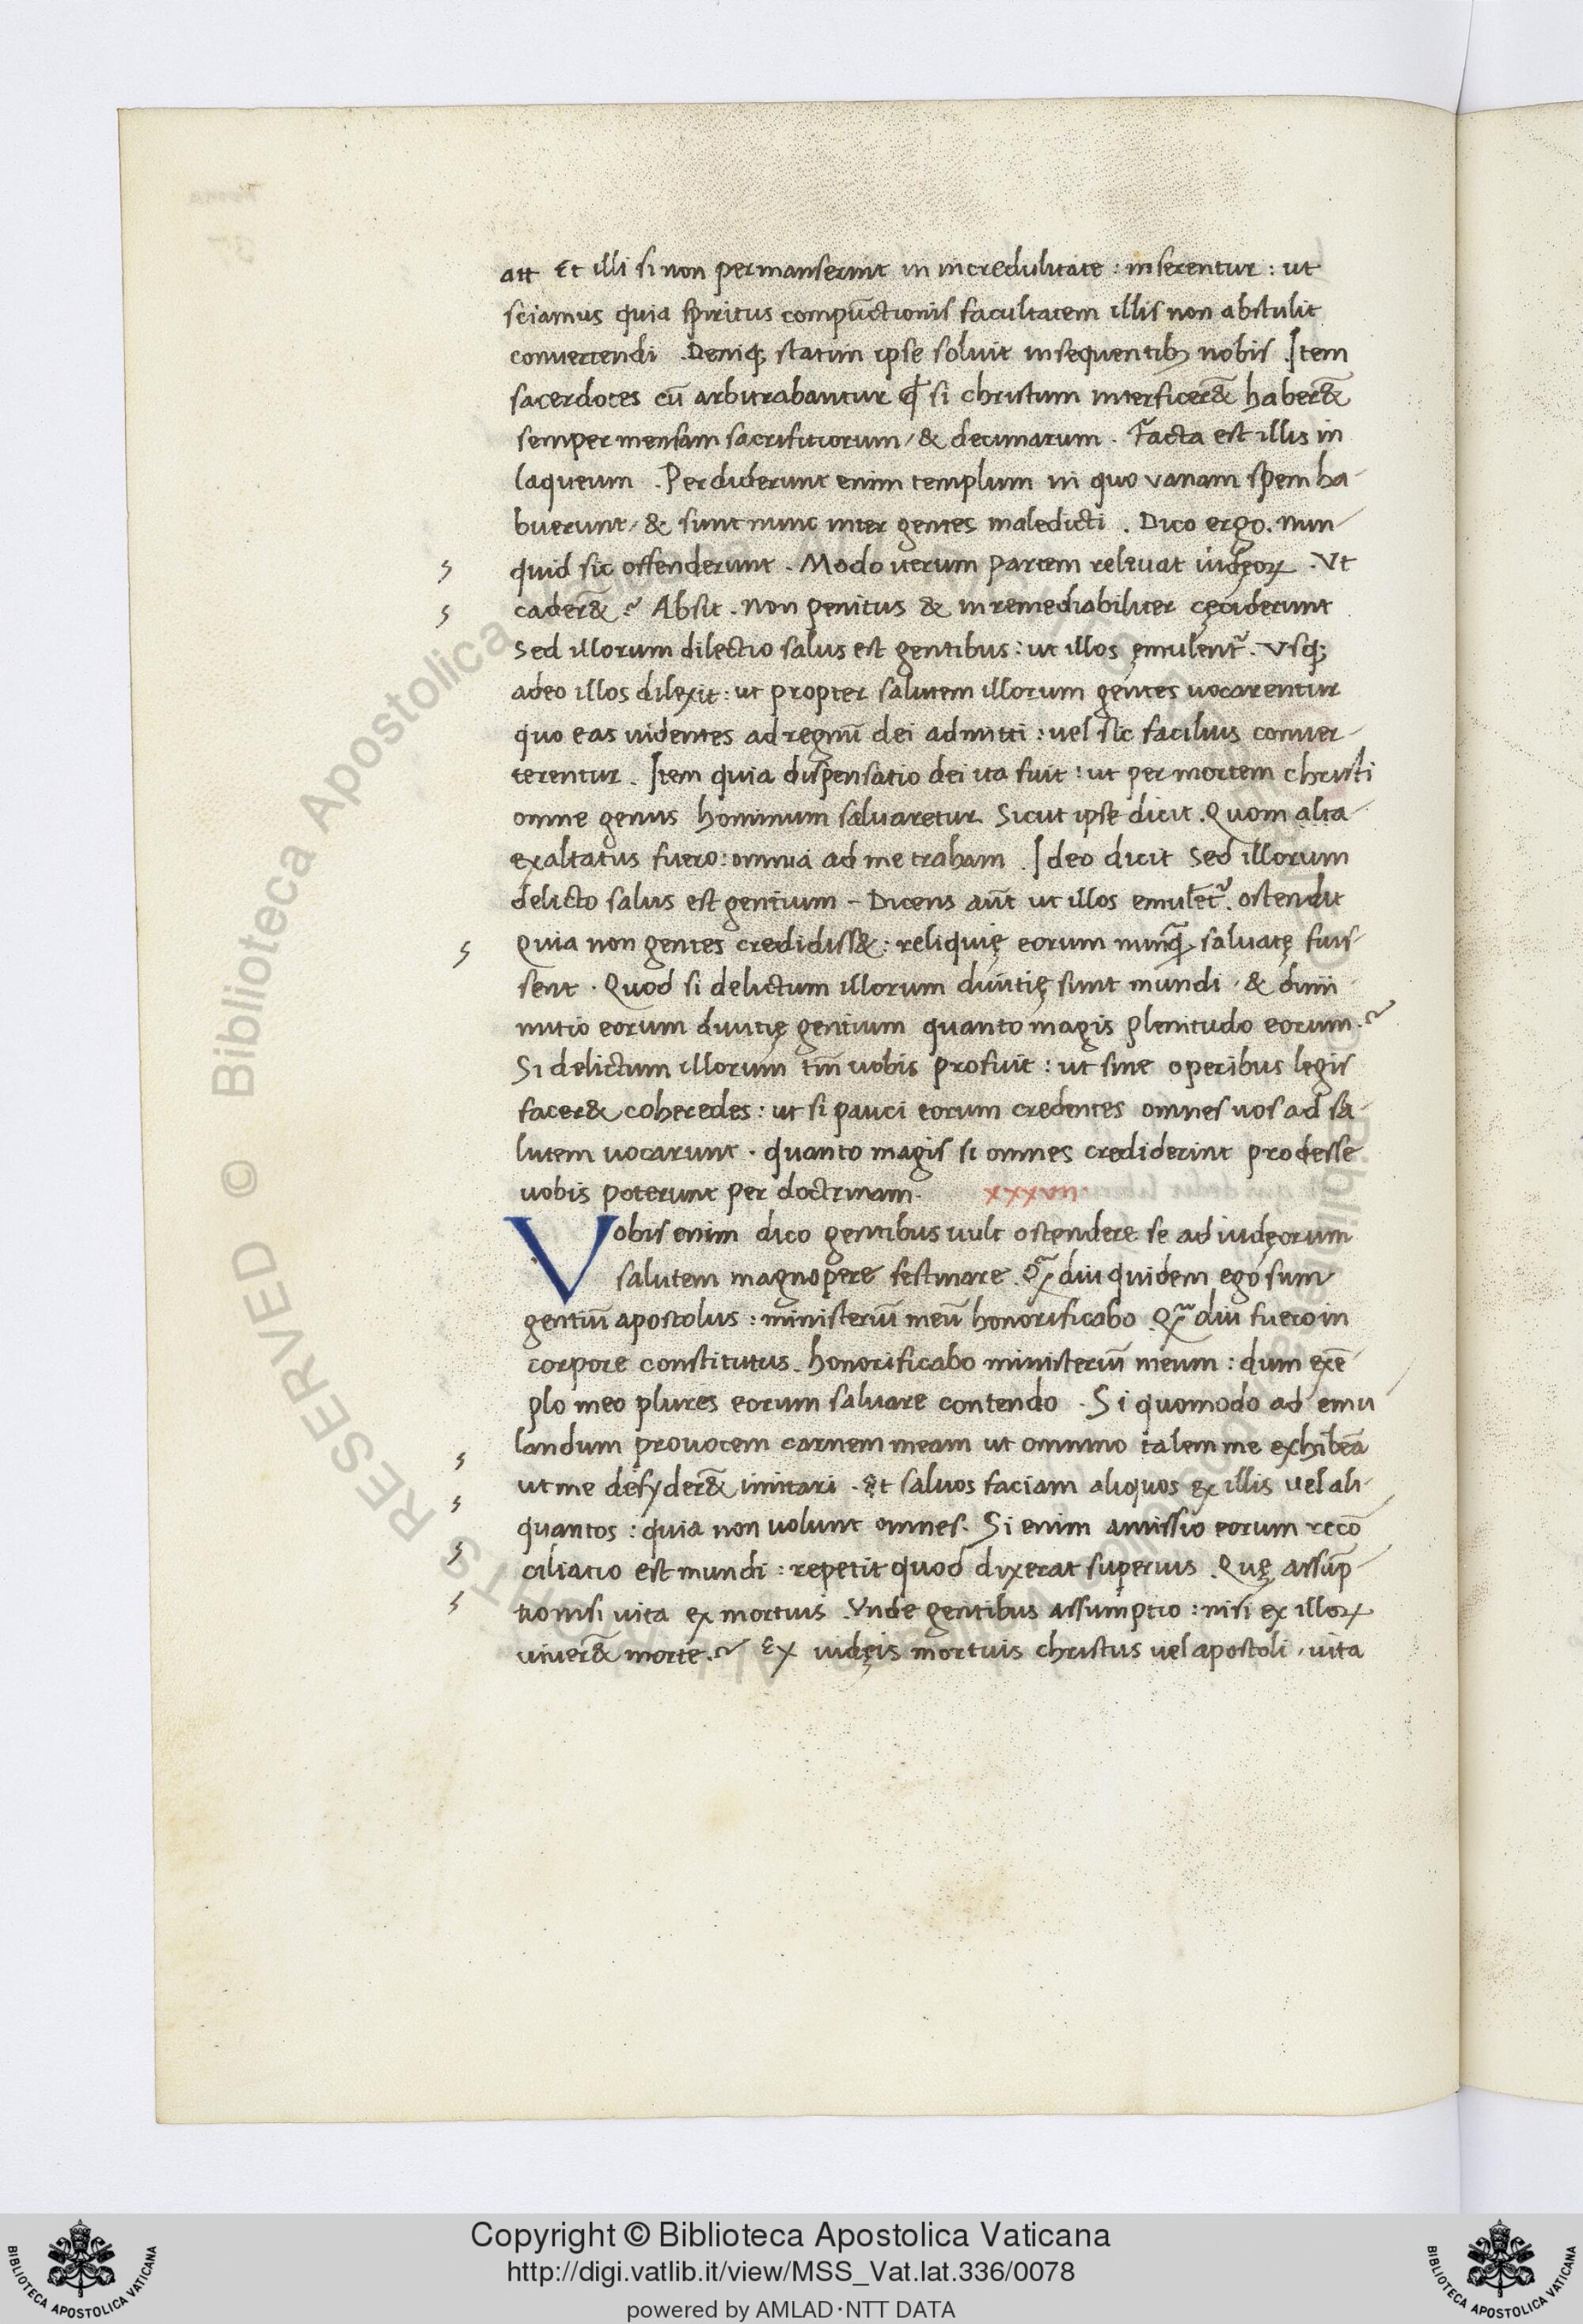 att Et illi si non permanserint in incredulitate : inserentur : ut
sciamus quia spiritus compūctionis facultatem illis non abstulit
convertendi . Deniq; statim ipse soluit insequentib; nobis . Item
sacerdotes cū arbitrabantur ꝙ si christum interficer&̄ haber&̄
semper mensam sacrifitiorum / & decimarum . Facta est illis in
laqueum . Perdiderunt enim templum in quo vanam spem ha-
buerunt / & sunt nunc inter gentes maledicti . Dico ergo . nun-
quid sic offenderunt . Modo iterum partem relevat iudęoꝝ . Vt
cader&̄ ? Absit . non penitus & inremediabiliter cęciderunt
Sed illorum dilectio salus est gentibus : ut illos ęmulent᷑ . Vsq;
adeo illos dilexit : ut propter salutem illorum gentes uocarentur
quo eas uidentes ad regnū dei admitti : uel sic facilius conver-
terentur . Item quia dispensatio dei ita fuit : ut per mortem christi
omne genus hominum salvaretur Sicut ipse dicit . Quom alta-
exaltatus fuero : omnia ad me traham . Ideo dicit Sed illorum
delicto salus est gentium - Dicens aūt ut illos emulēt᷑ . ostendit
Quia non gentes credidiss& : reliquię eorum nunꝗ̄ saluatę fuis-
sent . Quod si delictum illorum divitię sunt mundi . & dimi-
nutio eorum divitię gentium quanto magis plenitudo eorum . ?
Si delictum illorum tm̄ uobis profuit : ut sine operibus legis
facer& coheredes : ut si pauci eorum credentes omnes uos ad sa-
lutem uocarunt . quanto magis si omnes crediderint prodesse
uobis poterunt per doctrinam .
Vobis enim dico gentibus uult ostendere se ad iudęorum
salutem magnopere festinare . Qꝫ̄ diu quidem ego sum
gentiū apostolus : ministeriū meū honorificabo . Qꝫ̄ diu fuero in
corpore constitutus . honorificabo ministeriū meum : dum exē-
plo meo plures eorum saluare contendo . Si quomodo ad emu
landum prouocem carnem meam ut omnino talem me exhibeā
ut me desyder&̄ imitari . Et saluos faciam aliquos ex illis vel ali-
quantos : quia non uolunt omnes . Si enim amissio eorum recō
ciliatio est mundi : repetit quod dixerat superius . Quę assūp-
tio nisi vita ex mortuis . Vnde gentibus assumptio : nisi ex illoꝝ
uiver&̄ morte . ? Ex iudęis mortuis christus uel apostoli , vita
Copyright © Biblioteca Apostolica Vaticana
http://digi.vatlib.it/view/MSS_Vat.lat.336/0078
powered by AMLAD·NTT DATA